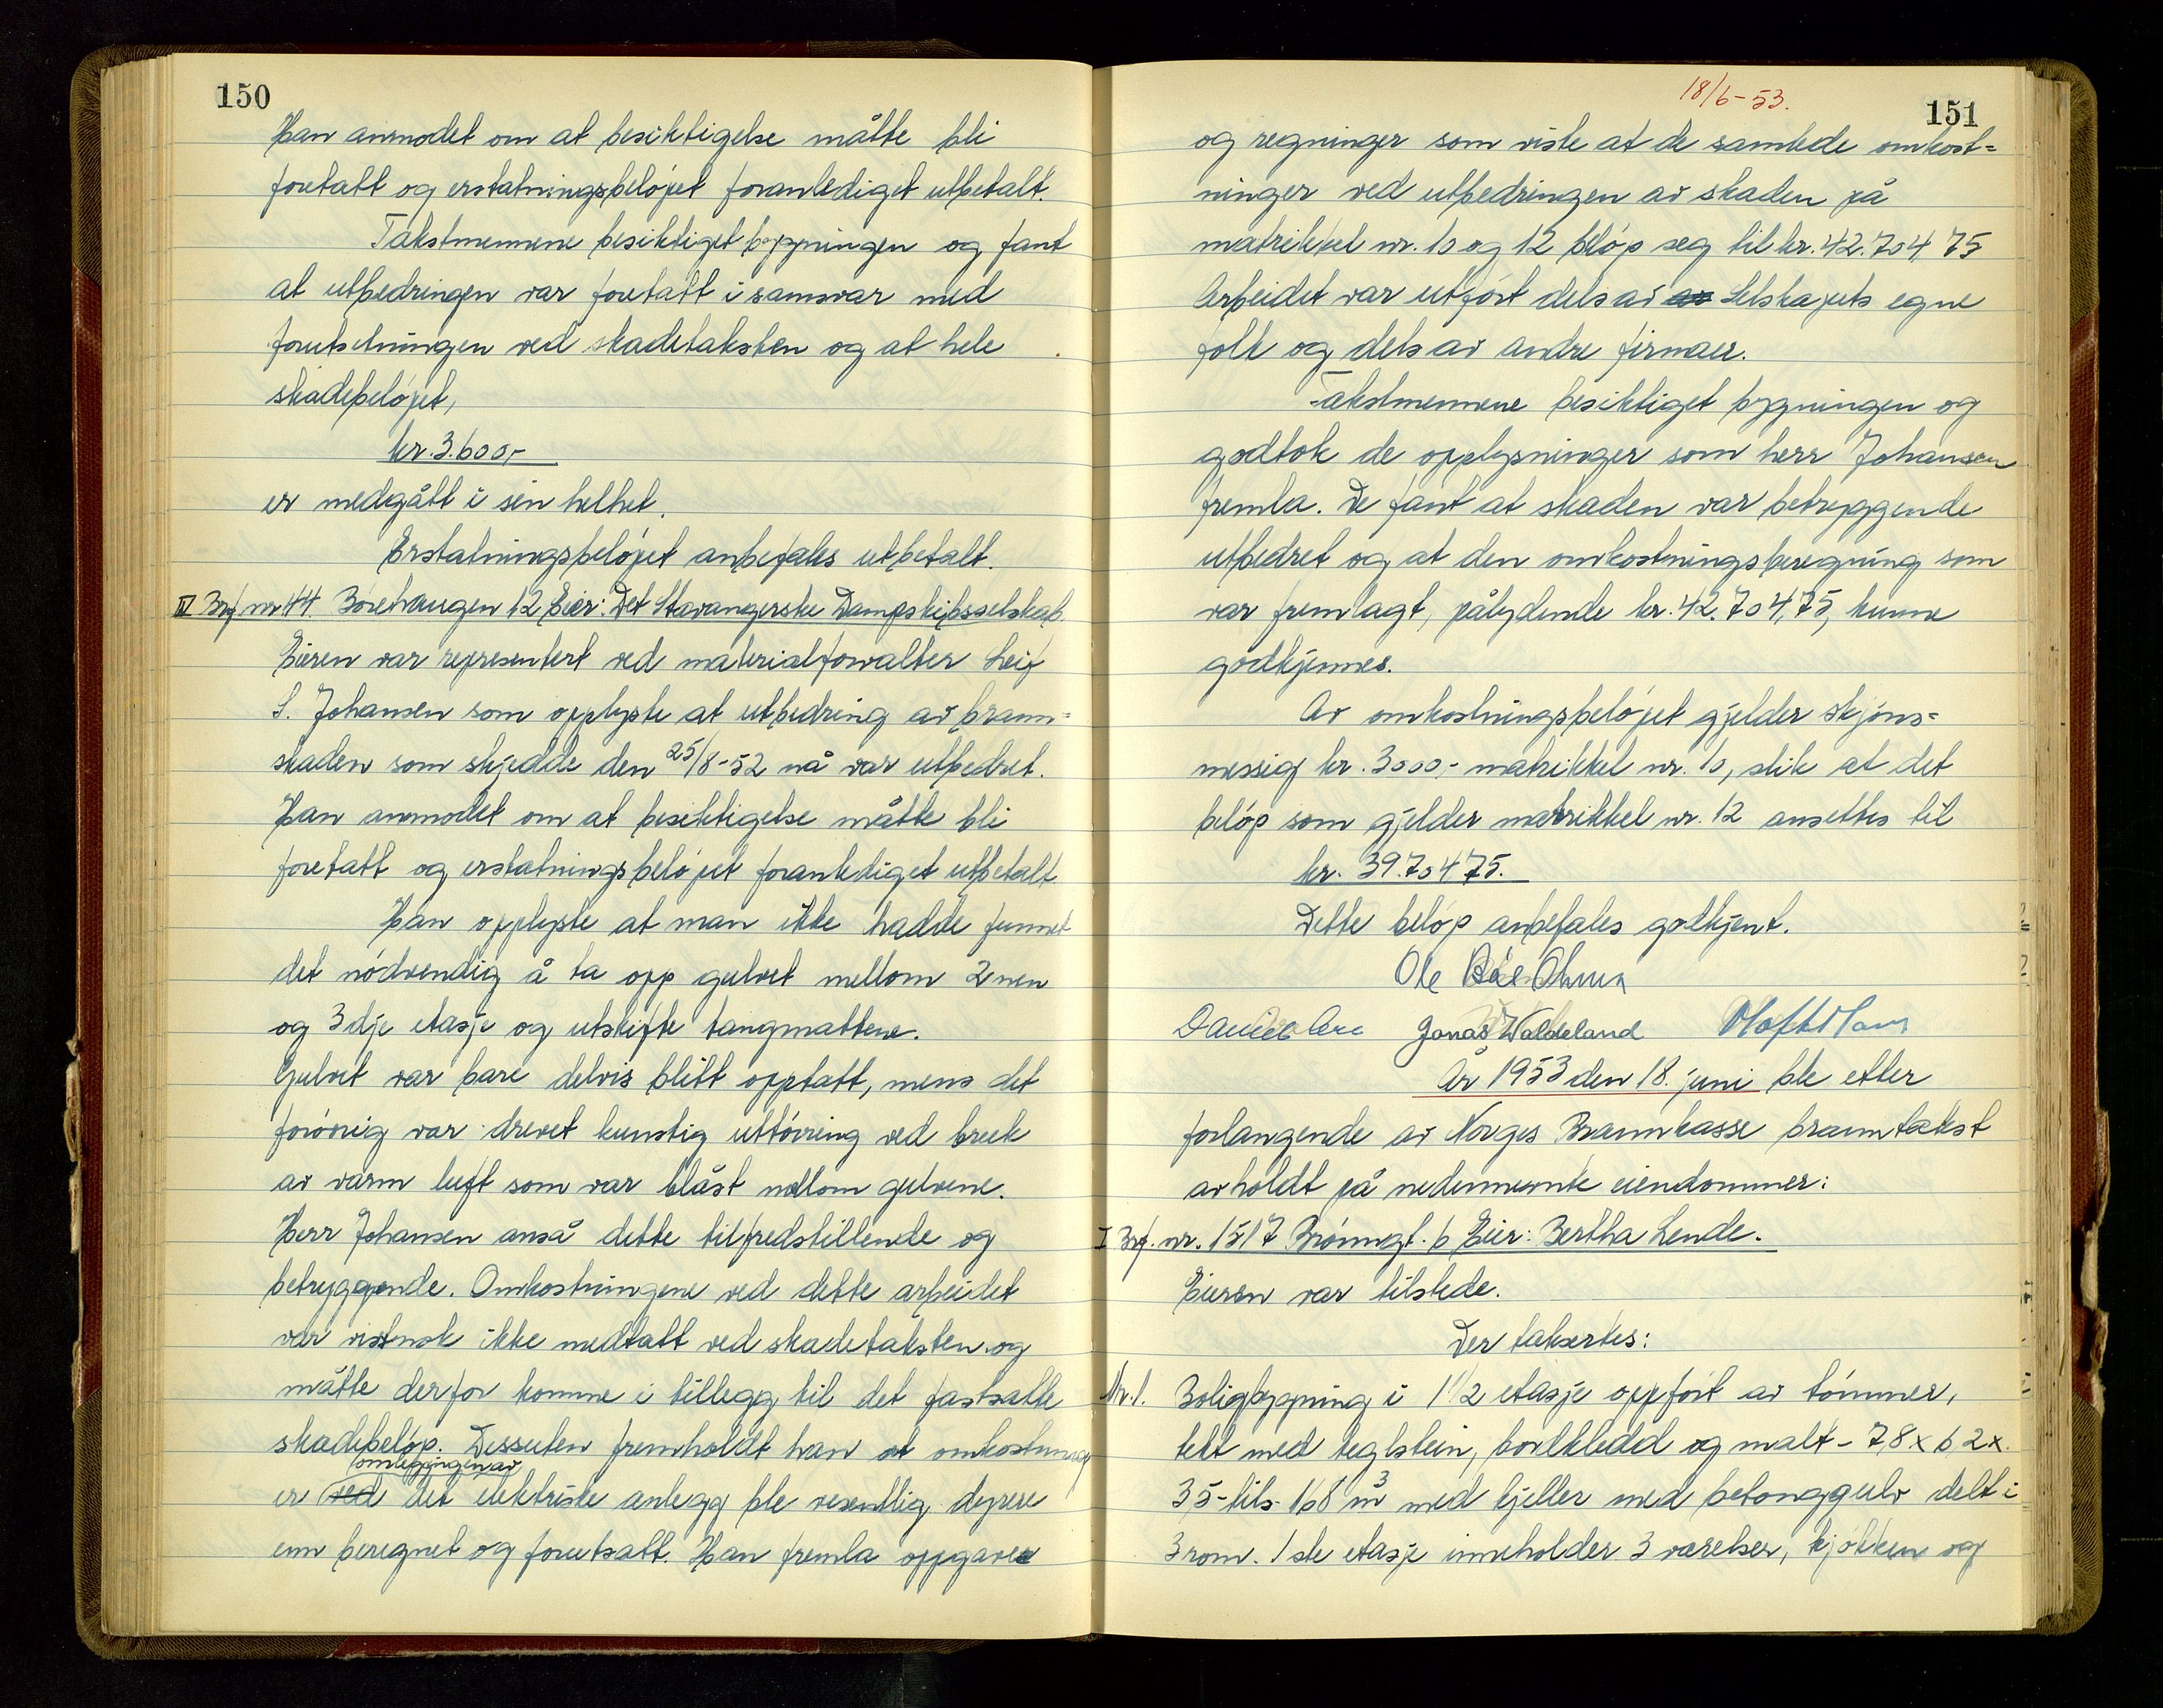 150
Han anmodet om at besiktigelse måtte bli
foretatt og erstatningsbeløpet foranlediget utbetalt.
Takstmennene besiktiget bygningen og fant
at utbedringen var foretatt i samsvar med
forutsetningen ved skadetaksten og at hele
skadebeløpet,
kr. 3.600,-
er medgått i sin helhet.
Erstatningsbeløpet anbefales utbetalt.
IV Brf nr 44. Börehaugen 12 Eier: Det Stavangerske Dampskibsselskab.
Eieren var representert ved materialforvalter Leif
S. Johansen som opplyste at utbedring av brann=
skaden som skjedde den 25/8-52 nå var utbedret.
Han anmodet om at besiktigelse måtte bli
foretatt og erstatningsbeløpet foranlediget utbetalt
Han opplyste at man ikke hadde funnet
det nödvendig å ta opp gulvet mellom 2nen
og 3dje etasje og utskifte tangmattene.
Gulvet var bare delvis blitt opptatt, mens det
forövrig var drevet kunstig uttörring ved bruk
av varm luft som var blåst mellom gulvene.
Herr Johansen anså dette tilfredstillende og
betryggende. Omkostningene ved dette arbeidet
var vistnok ikke medtatt ved skadetaksten og
måtte derfor komme i tillegg til det fastsatte
skadebelöp. Dessuten fremholdt han at omkostning
omleggingen av
er ved det elektriske anlegg ble vesentlig dyrere
enn beregnet og forutsatt. Han fremla oppgaver
18/6-53.
151
og regninger som viste at de samlede omkost=
ninger ved utbedringen av skaden på
matrikkel nr. 10 og 12 belöp seg til kr. 42.704 75
Arbeidet var utfört dels av av Selskapets egne
folk og dels av andre firmaer.
Takstmennene besiktiget bygningen og
godtok de opplysninger som herr Johansen
fremla. De fant at skaden var betryggende
utbedret og at den omkostningsberegning som
var fremlagt, pålydende kr. 42.704,75, kunne
godkjennes.
Av omkostningsbelöpet gjelder skjöns=
messig kr. 3000,- matrikkel nr. 10, slik at det
belöp som gjelder matrikkel nr. 12 ansettes til
kr. 39.704 75.
Dette belöp anbefales godkjent.
Ole
Jonas Waldeland
År 1953 den 18. juni ble etter
forlangende av Norges Brannkasse branntakst
avholdt på nedennevnte eiendommer:
I Brf. nr. 1517 Brönngt. 6 Eier: Bertha Lende.
Eieren var tilstede.
Der taksertes:
Nr. 1. Boligbygning i 1 1/2 etasje oppfört av tömmer,
tekt med teglstein, bordkledd og malt - 7,8 x 6,2 x
3,5 - tils. 168 m3 med kjeller med betonggulv delt i
3 rom. 1ste etasje inneholder 3 værelser, kjökken og